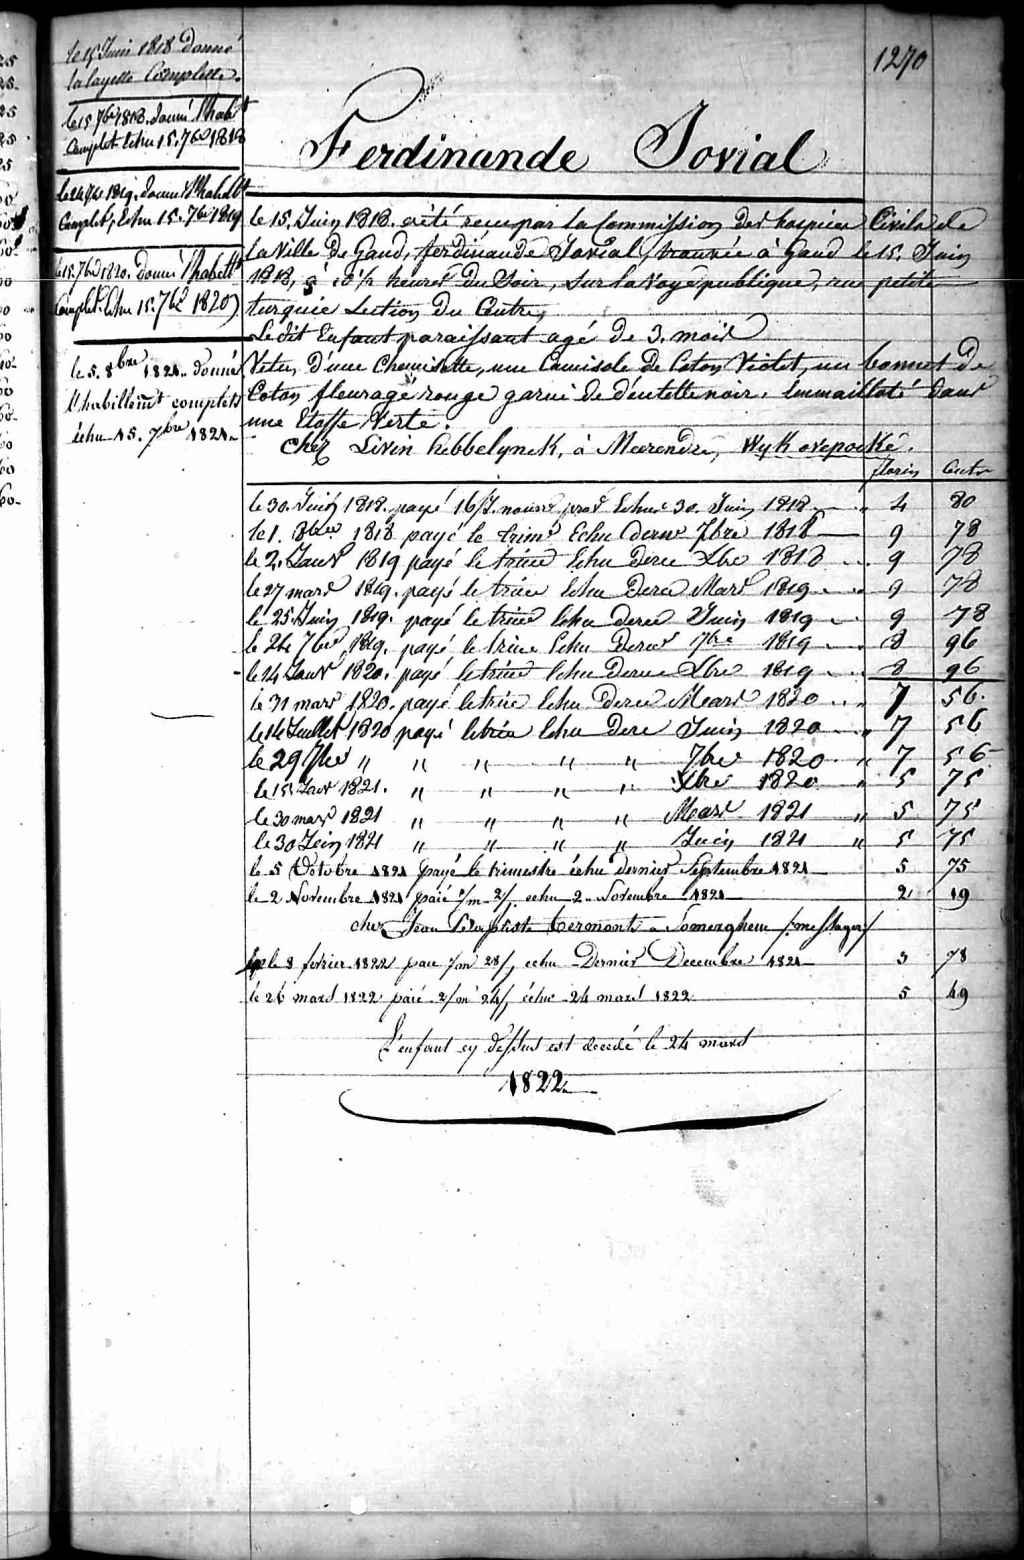 1270
le 15 Juin 1818 donné
la layette Complette.
le 15. 7bre 1818. donné l'habt
Complet Echu 15. 7bre 1818
le 24 7bre 1819. donné l'habillt
Complet, Echu 15. 7bre 1819
le 15. 7bre 1820. donné l'habillt
Complet. Echu 15. 7bre 1820
le 5. 8bre 1821. donné
l'habillemt complets
échu 15. 7bre 1821.
Ferdinande Jovial
le 15. Juin 1818. a été reçu par la Commission des hospices Civils de
la Ville de Gand, ferdinande Jovial, trouvée à Gand le 15. Juin
1818, à 10 1/2 heures Du Soir, Sur la Voye publique, rue petite
turquie Section Du Centre,
Le dit Enfant paraissant agé de 3. mois
Vetu, d'une Chemisette, une Camisole de Coton Violet, un bonnet de
Coton fleuragé rouge garni de dentelle noir. Emmailloté dans
une Etoffe Verte.
chez Livin hebbelynck, à Meerendré, Wyk ovepoeke.
florin Cents
le 30. Juin 1818. payé 16/J. Echus 30. Juin 1818 4 80
le 1. 8bre 1818 payé le trime Echu derne 7bre 1818 9 78
le 2. Janvr 1819 payé le trime Echu derne Xbre 1818 9 78
le 27 mars 1819. payé le trime Echu derne Mars 1819 9 78
le 25 Juin 1819. payé le trime Echu derne Juin 1819 9 78
le 24 7bre 1819. payé le trime Echu derne 7bre 1819 8 96
le 14 Janvr 1820. payé le trime Echu derne Xbre 1819 8 96
le 31 mars 1820. payé le trime Echu derne Mars 1820 7 56.
le 14 Juillet 1820 payé le trime Echu derne Juin 1820 7 56
le 29 7bre " " " " " 7bre 1820 " 7 56
le 15. Janr 1821. " " " " Xbre 1820 " 5 75
le 30 mars 1821 " " " " Mars 1821 " 5 75
le 30 Juin 1821 " " " " Juin 1821 " 5 75
le 5 Octobre 1821 payé le trimestre échu dernier Septembre 1821 5 75
le 2 Novembre 1821 paié 1/m 2/j echu 2 Novembre 1821 2 19
chez Jean Baptiste Termont à Somerghem
le 8 fevrier 1822 paié 1/m 28/j echu Dernier Decembre 1821 3 78
le 26 mars 1822 paié 2/m 24/j échu 24 mars 1822 5 49
L'enfant cy dessus est decedé le 24 mars
1822